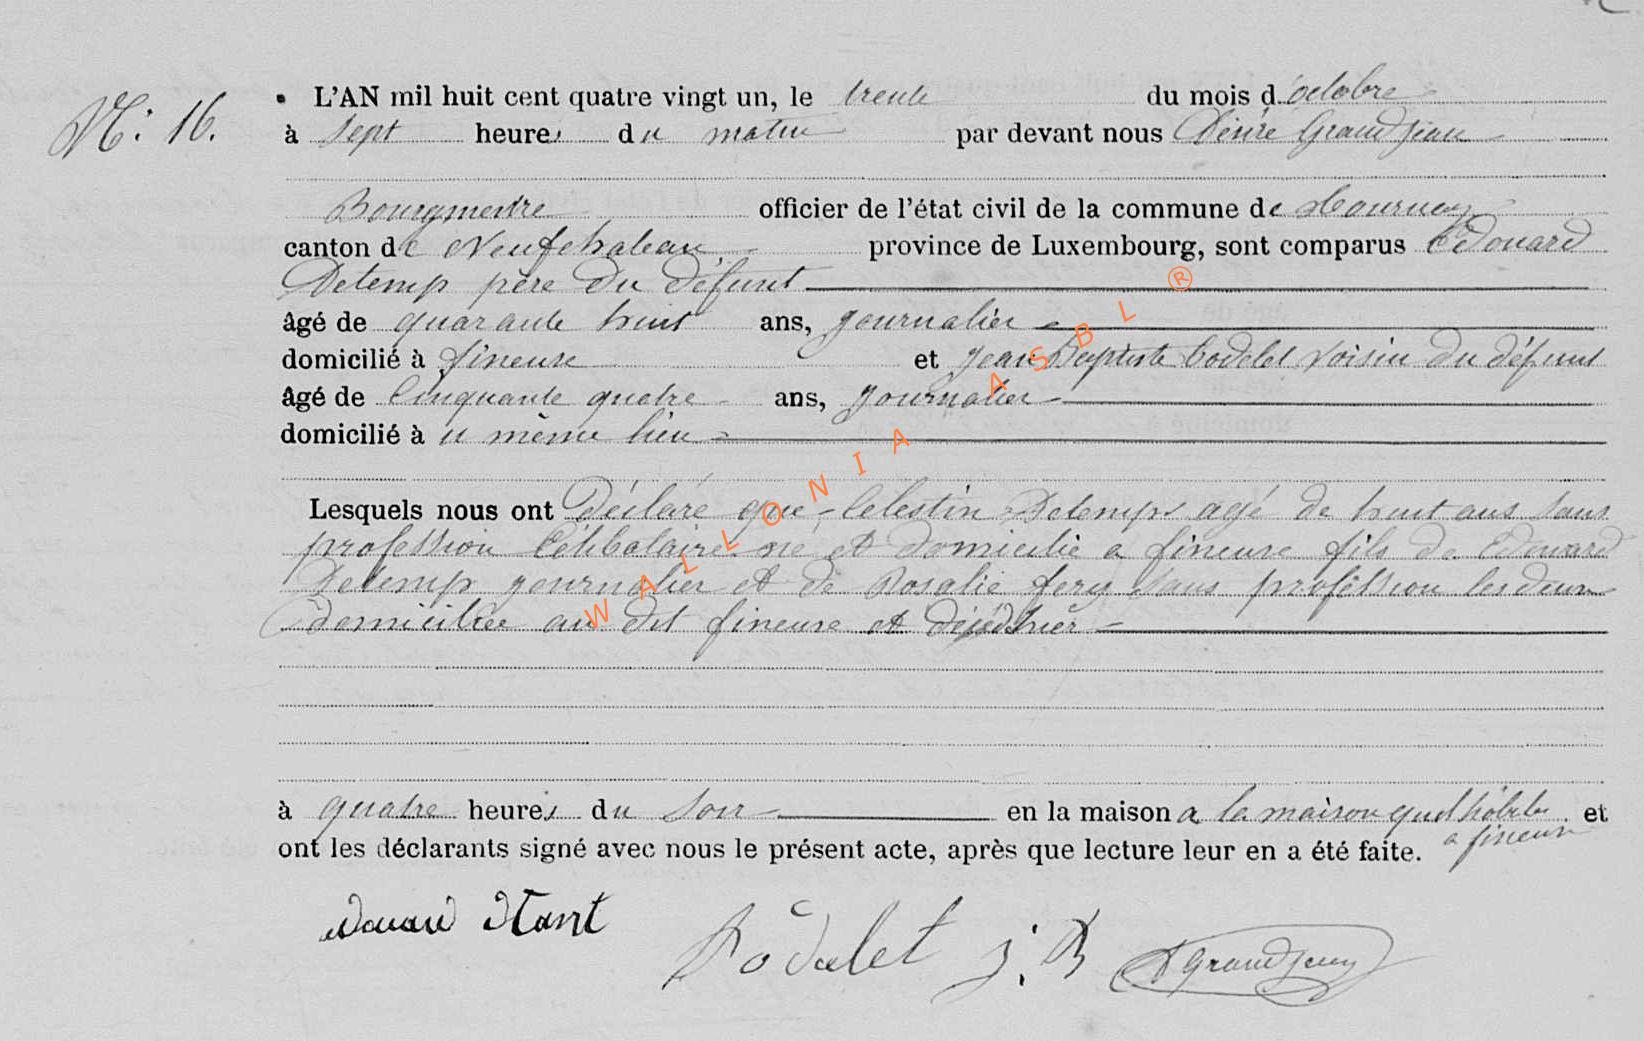 N: 16.
L'AN mil huit cent quatre vingt un, le trente du mois d'octobre
à sept heures du matin par devant nous Désiré Grandjean
Bourgmestre officier de l'état civil de la commune de Tournay
canton de Neufchateau province de Luxembourg, sont comparus Edouard
Detemp père du défunt
âgé de quarante huit ans, journalier
domicilié à fineuse et Jean Baptiste Godelet voisin du défunt
âgé de Cinquante quatre ans, journalier
domicilié à u même lieu
Lesquels nous ont Déclaré que Celestin Detemps agé de huit ans sans
profession Célibataire né et domicilié a fineuse fils de Edouard
Detemp journalier et de Rosalie fery sans profession les deux
domiciliée au dit fineuse et hier
à quatre heures du soir en la maison a la maison quel hôbite et
a fineuse
ont les déclarants signé avec nous le présent acte, après que lecture leur en a été faite.
j: B DGrandjean
WALLONIA ASBL ®